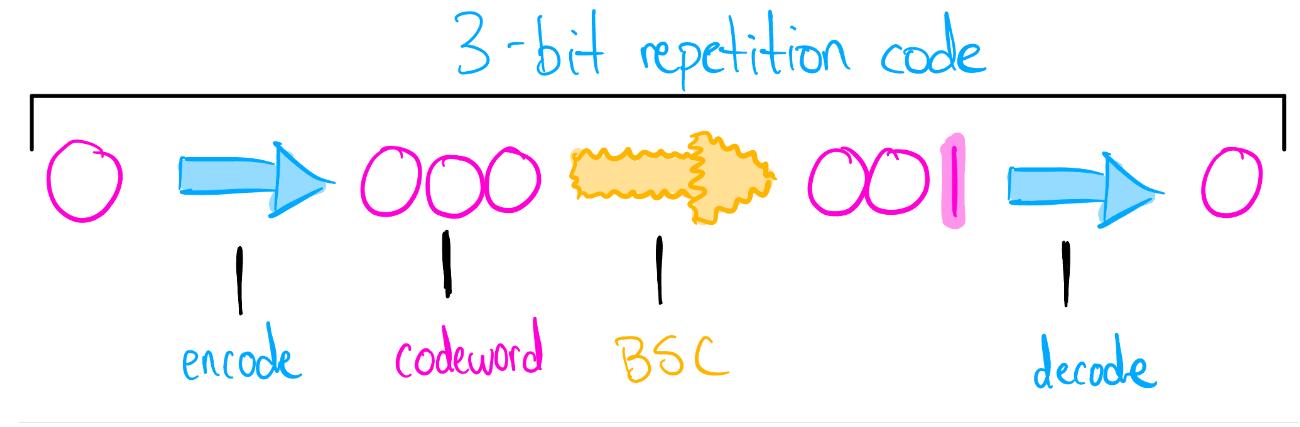 3-bit repetition code
0 000 001 0
encode codeword BSC decode